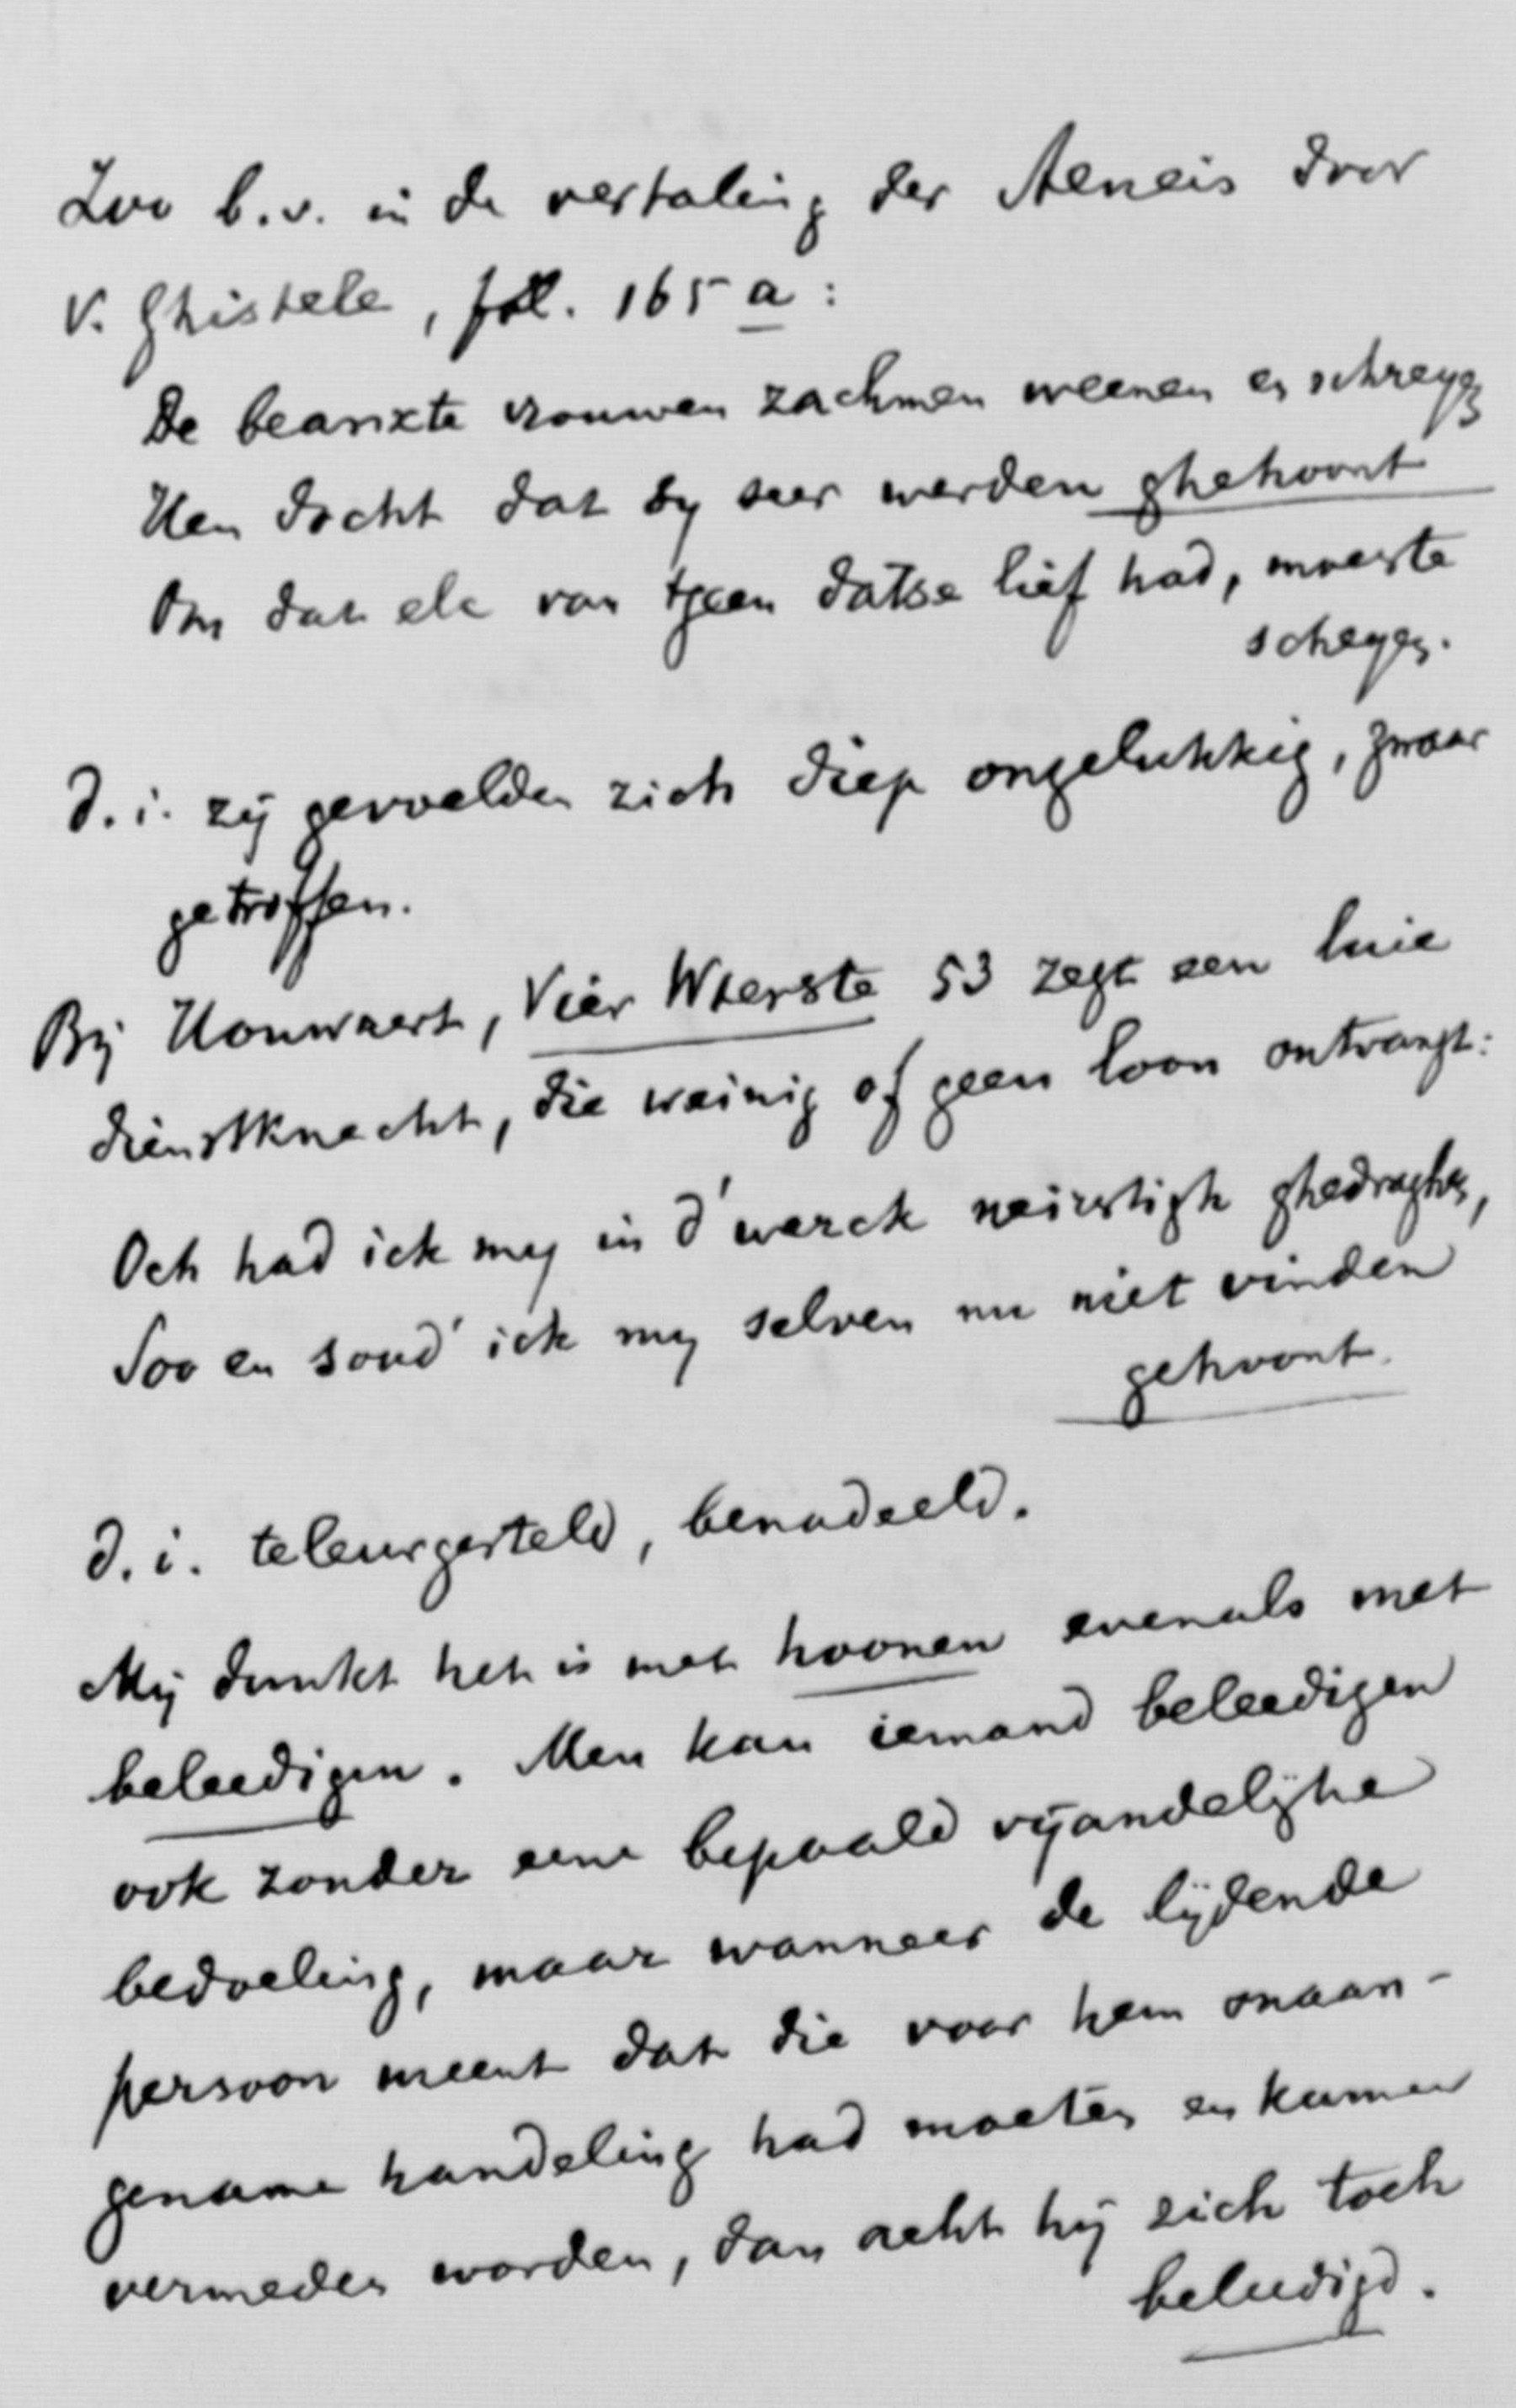 Zoo b.v. in de vertaling der Aeneis door
V. Ghistele, fol. 165 a:
De beanxte vrouwen zachmen weenen en schreyen
Hen docht dat sy seer werden ghehoont
Om dat elc van tgeen datse lief had, moeste
scheyen.
d.i. zij gevoelden zich diep ongelukkig, zwaar
getroffen.
Bij Houwaert, Vier Wterste 53 zegt een luie
dienstknecht, die weinig of geen loon ontvangt:
Och had ick my in d'werck neirstigh ghedraghen,
Soo en soud' ick my selven nu niet vinden
gehoont.
d.i. teleurgesteld, benadeeld.
Mij dunkt het is met hoonen evenals met
beleedigen. Men kan iemand beleedigen
ook zonder eene bepaald vijandelijke
bedoeling, maar wanneer de lijdende
persoon meent dat die voor hem onaan-
gename handeling had moeten en kunnen
vermeden worden, dan acht hij zich toch
beleedigd.